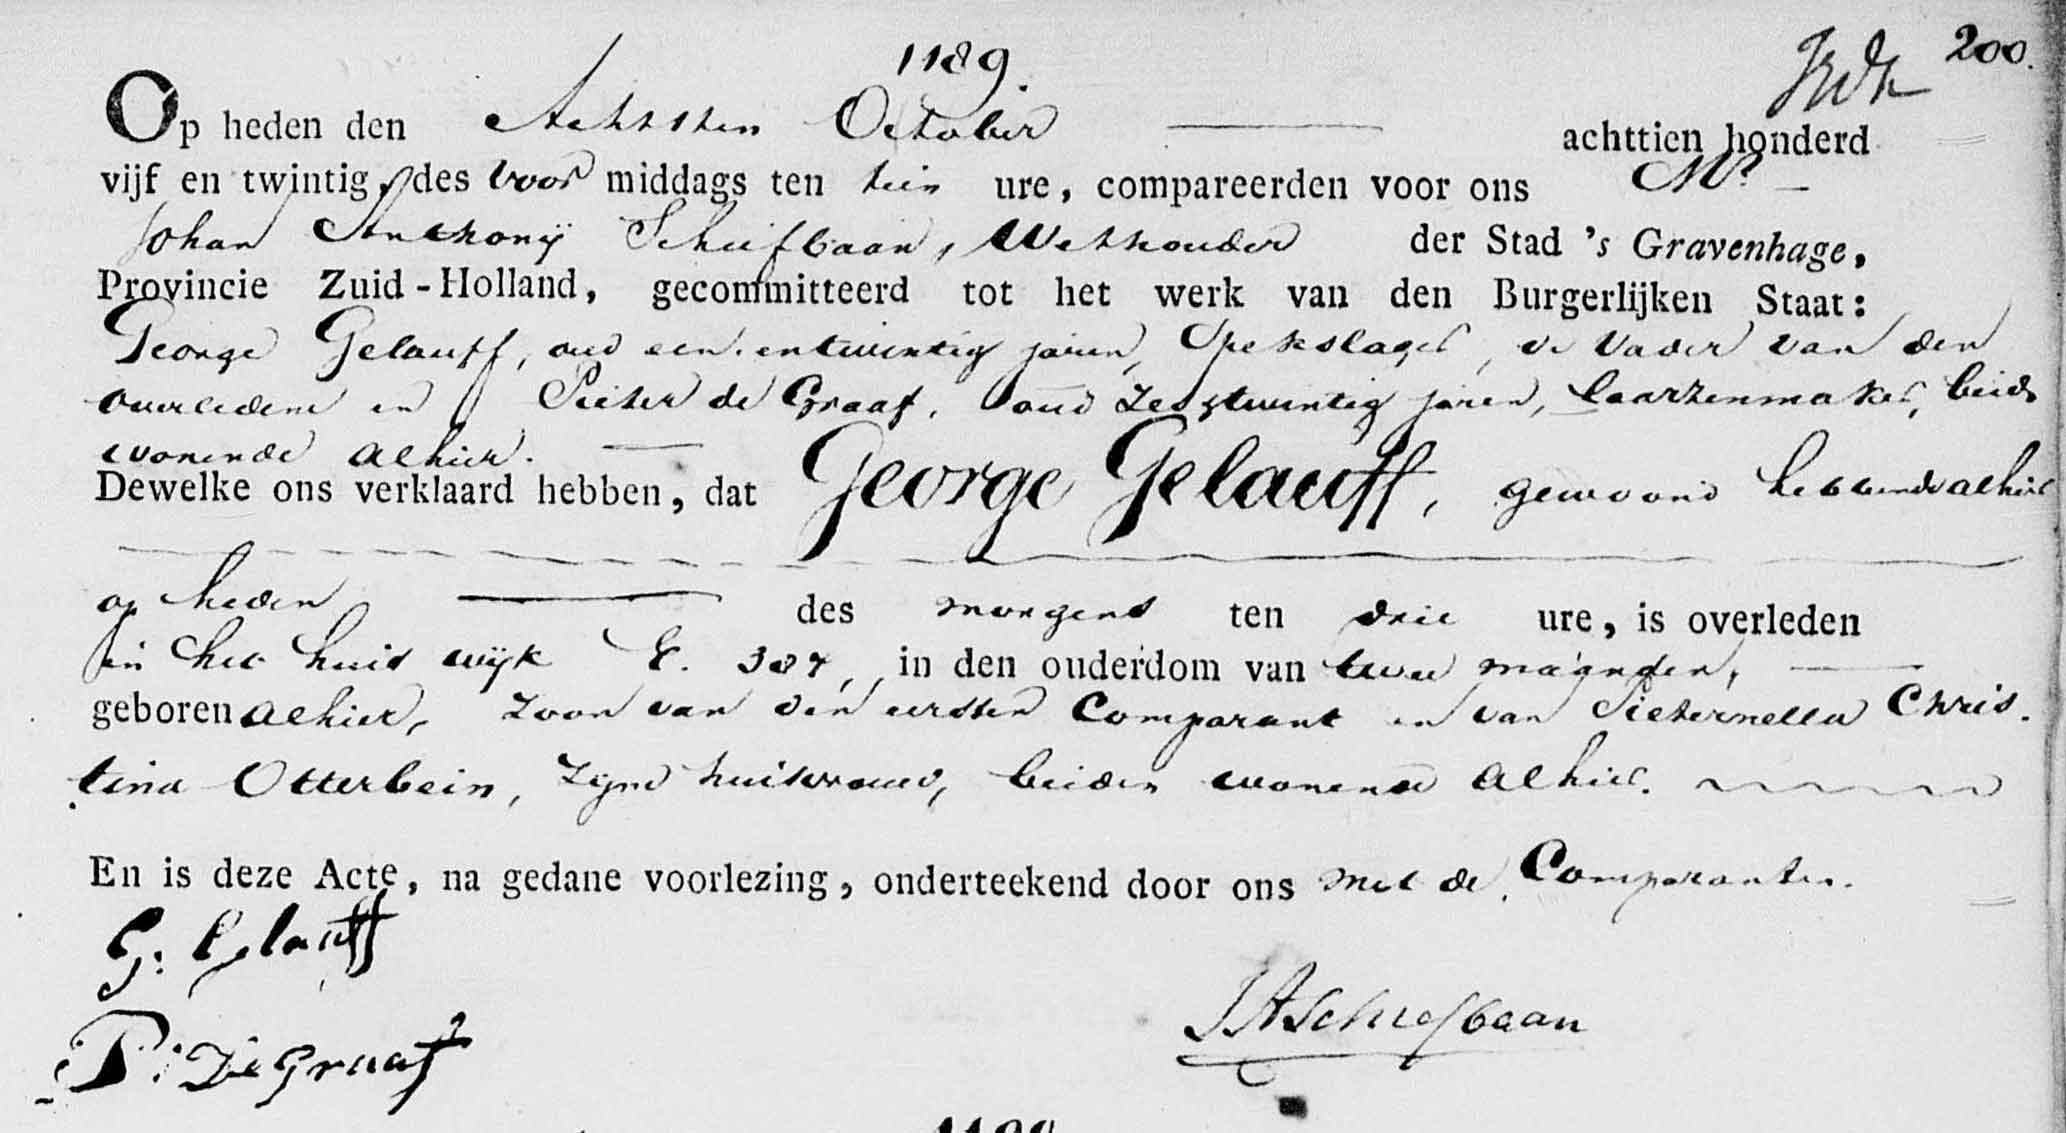 1189.
200.
Op heden den Achtsten October achttien honderd
vijf en twintig, des voor middags ten tien ure, compareerden voor ons Mr.
Johan Anthonij Schiefbaan, Wethouder der Stad 's Gravenhage,
Provincie Zuid-Holland, gecommitteerd tot het werk van den Burgerlijken Staat:
George Gelauff, oud een. en twintig jaren, Spekslager, de Vader van den
overledene en Pieter de Graaf, oud zes en twintig jaren, Laarzenmaker, beide
wonende alhier.
Dewelke ons verklaard hebben, dat George Gelauff, gewoond hebbende alhier
op heden des morgens ten drie ure, is overleden
in het huis wijk E. 387, in den ouderdom van twee maanden,
geboren alhier, zoon van den eersten Comparant en van Pieternella Chris-
tina Otterbein, zijne huisvrouw, beiden wonende alhier.
En is deze Acte, na gedane voorlezing, onderteekend door ons met de Comparanten.
G: Gelauff
P: De Graaf
JA Schiefbaan